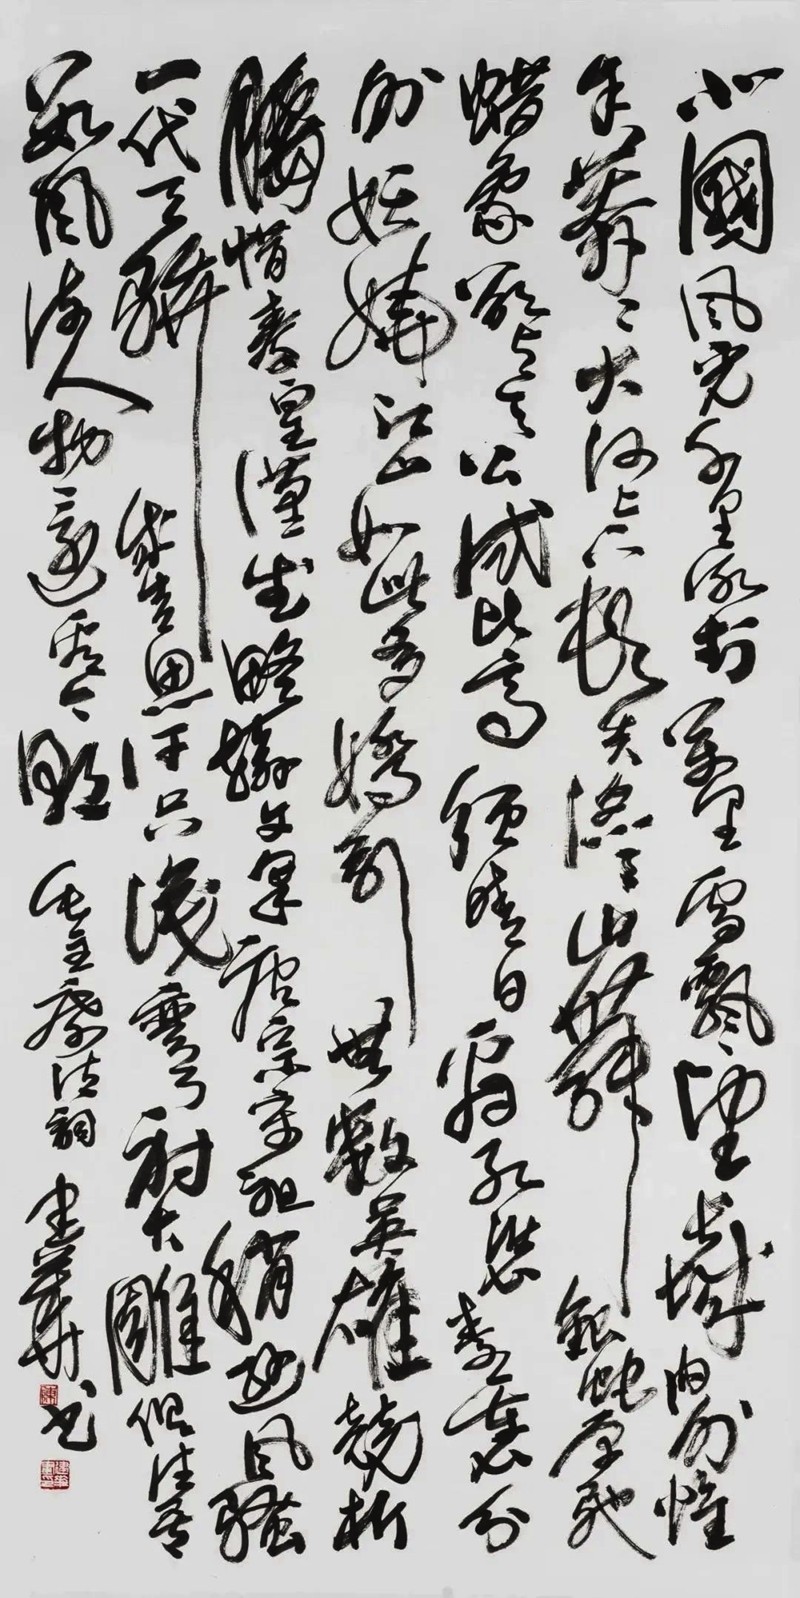 北國風光千里冰封萬里雪飄望長城內外惟
余莽〻大河上下頓失滔〻山舞銀蛇原馳
蜡象欲与天公試比高須晴日看紅裝素裹分
外妖嬈江山如此多嬌引無數英雄競折
腰惜秦皇漢武略輸文采唐宗宋祖稍遜風騷
一代天驕成吉思汗只識彎弓射大雕俱往矣
數風流人物還看今朝 毛主席詩詞 建華书